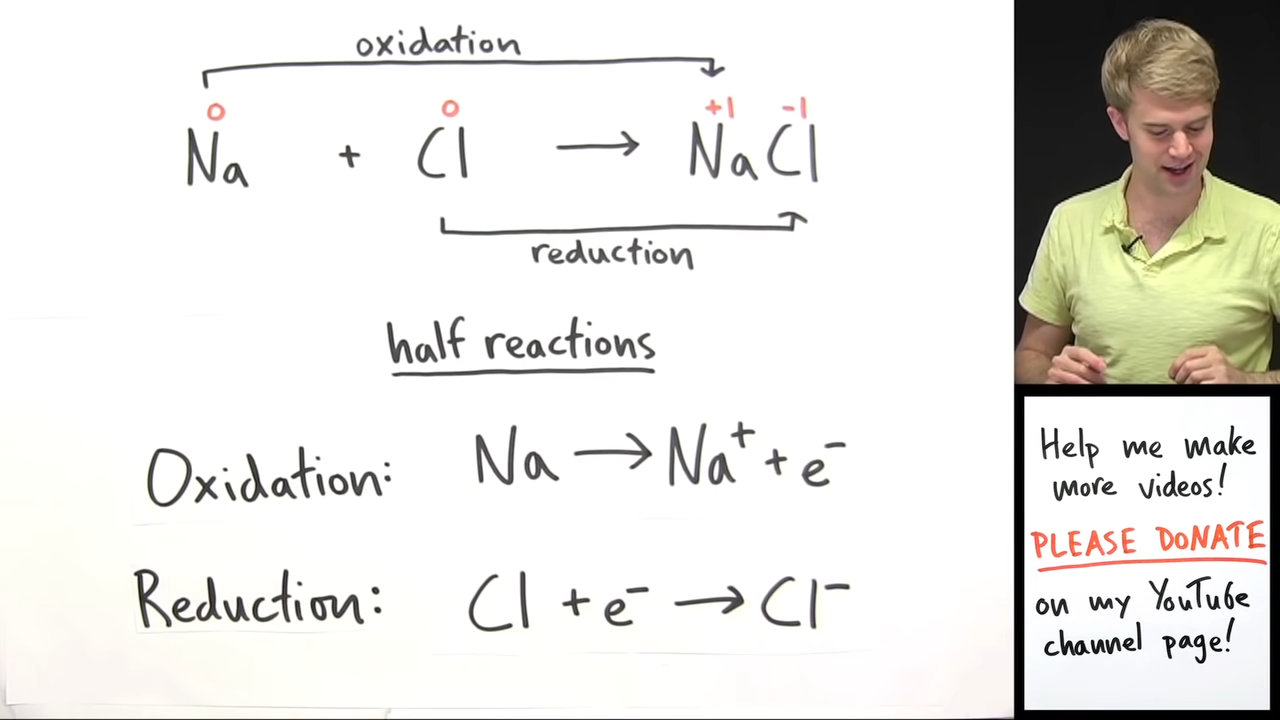 oxidation
0 0 +1 -1
Na + Cl → NaCl
reduction
half reactions
Oxidation: Na → Na⁺ + e⁻
Reduction: Cl + e⁻ → Cl⁻
Help me make
more videos!
PLEASE DONATE
on my YouTube
channel page!